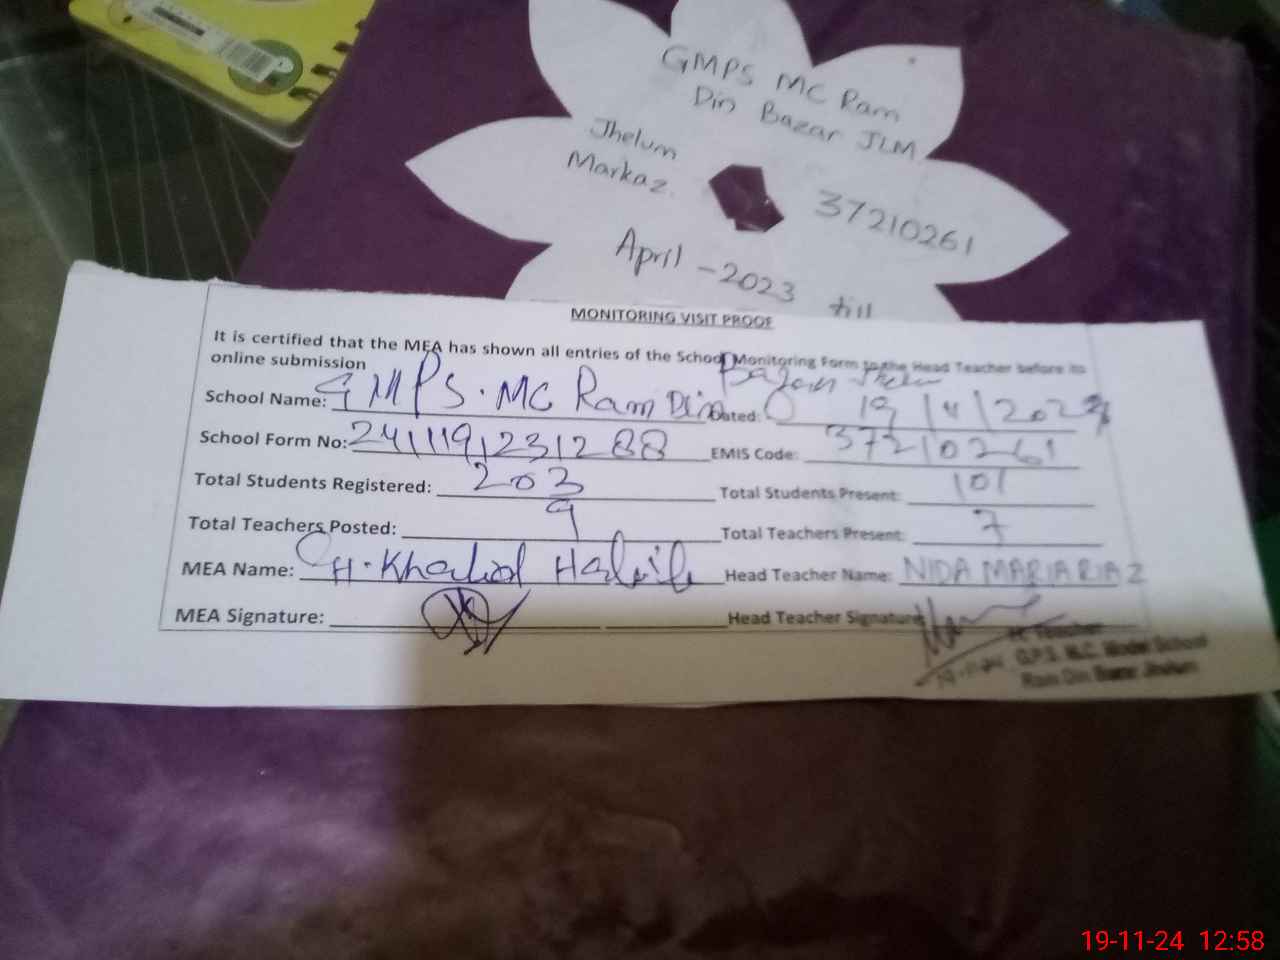 GMPS MC Ram
Din Bazar JLM
Jhelum
Markaz.
37210261
April - 2023 till
MONITORING VISIT PROOF
It is certified that the MEA has shown all entries of the School Monitoring Form to the Head Teacher before its
online submission
School Name: GMPS. MC Ram Din Dated: 19/11/2024
School Form No: 2411191231288 EMIS Code: 37210261
Total Students Registered: 203 Total Students Present: 101
Total Teachers Posted: 9 Total Teachers Present: 7
MEA Name: CH. Khalid Head Teacher Name: NIDA MARIA RIAZ
MEA Signature: Head Teacher Signature:
H. Teacher
G.P.S. M.C. Model School
Ram Din Bazar Jhelum
19-11-24 12:58